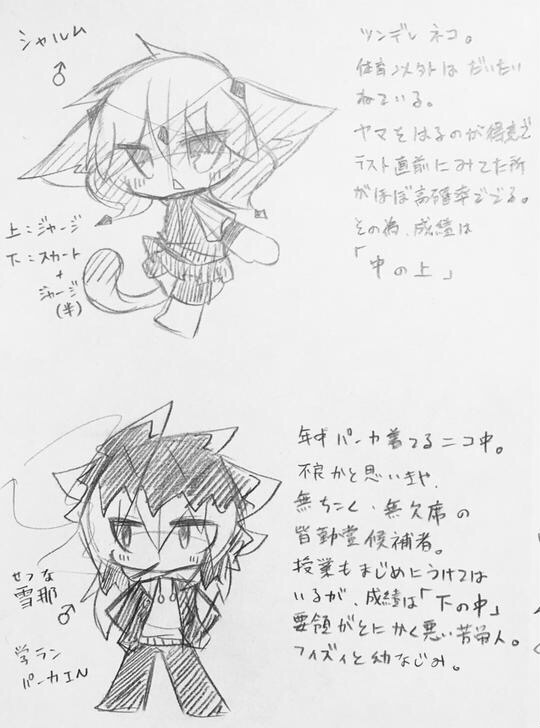 シャルム
♂
ツンデレ ネコ。
体育以外はだいたい
ねている。
ヤマをはるのが得意で
テスト直前にみてた所
がほぼ高確率ででる。
その為、成績は
「中の上」
上:ジャージ
下:スカート
+
ジャージ
(半)
年中パーカ着てるニコ中。
不良かと思いきや、
無ちこく・無欠席の
皆勤賞候補者。
授業もまじめにうけては
いるが、成績は「下の中」
要領がとにかく悪い苦労人。
フィズィと幼なじみ。
せつな
雪那
♂
学ラン
パーカIN